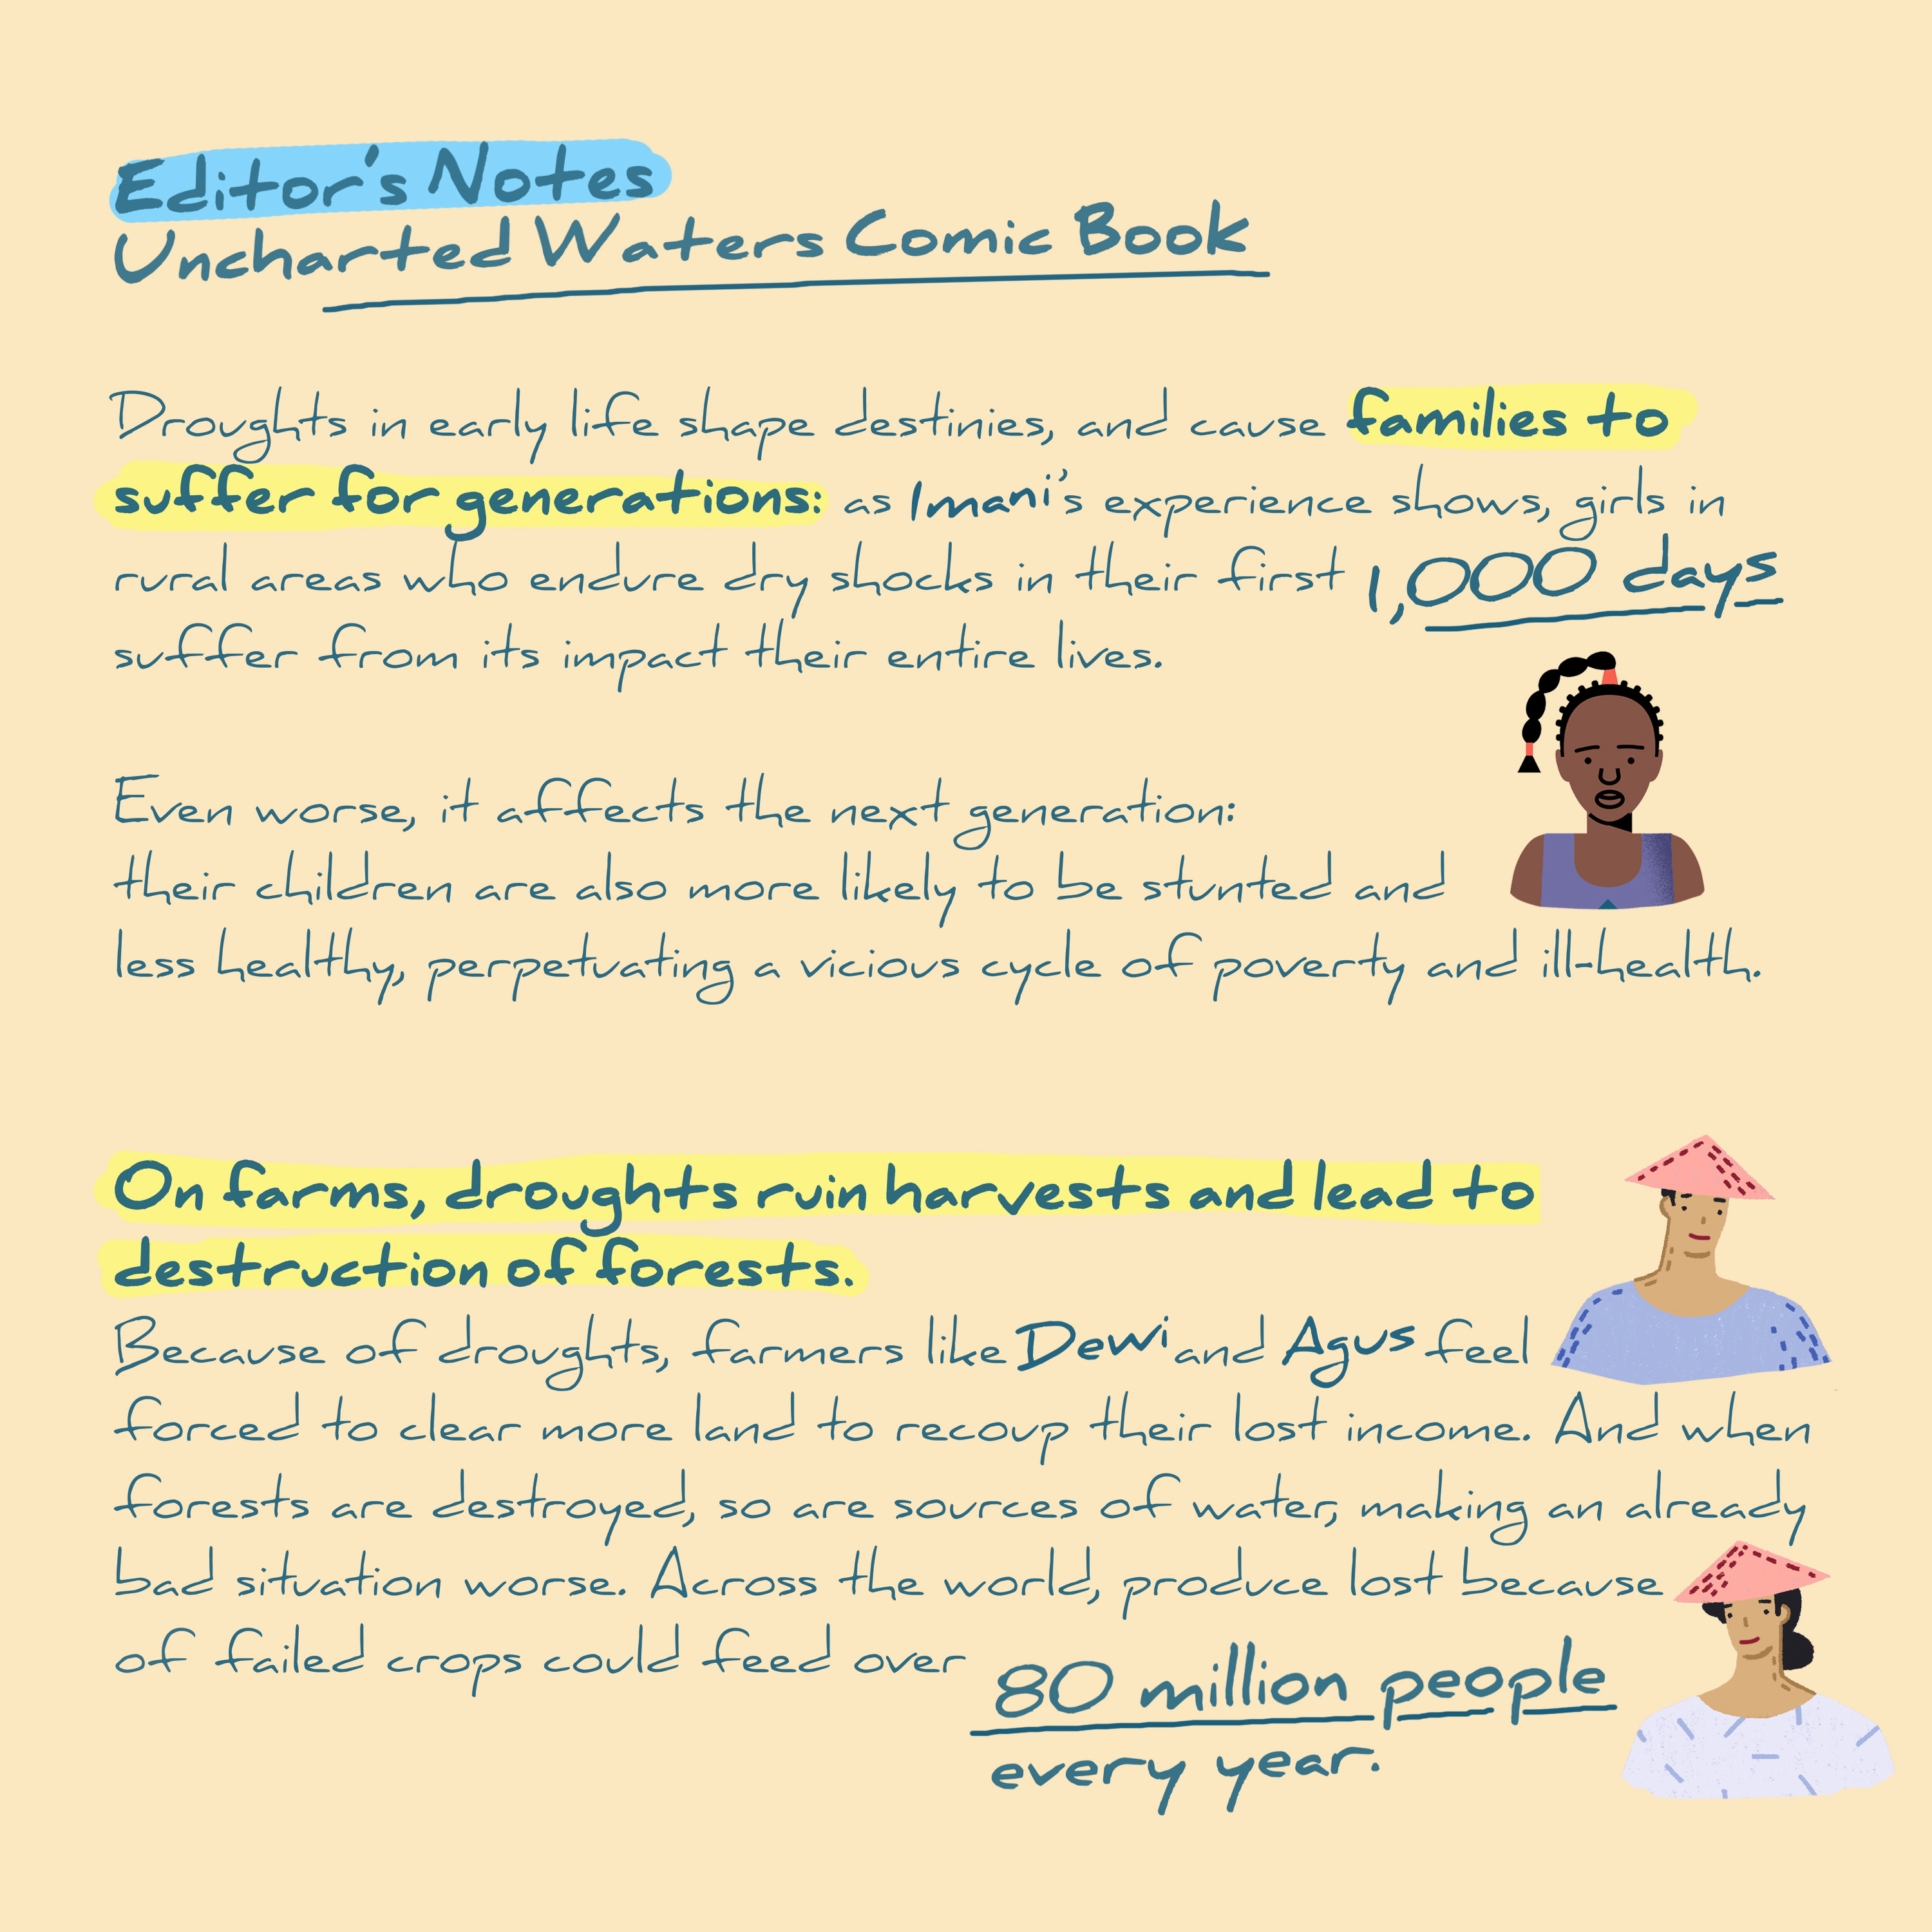 Editor's Notes
Uncharted Waters Comic Book
Droughts in early life shape destinies, and cause families to
suffer for generations: as Imani's experience shows, girls in
rural areas who endure dry shocks in their first 1,000 days
suffer from its impact their entire lives.
Even worse, it affects the next generation:
their children are also more likely to be stunted and
less healthy, perpetuating a vicious cycle of poverty and ill-health.
On farms, droughts ruin harvests and lead to
destruction of forests.
Because of droughts, farmers like Dewi and Agus feel
forced to clear more land to recoup their lost income. And when
forests are destroyed, so are sources of water, making an already
bad situation worse. Across the world, produce lost because
of failed crops could feed over 80 million people
every year.